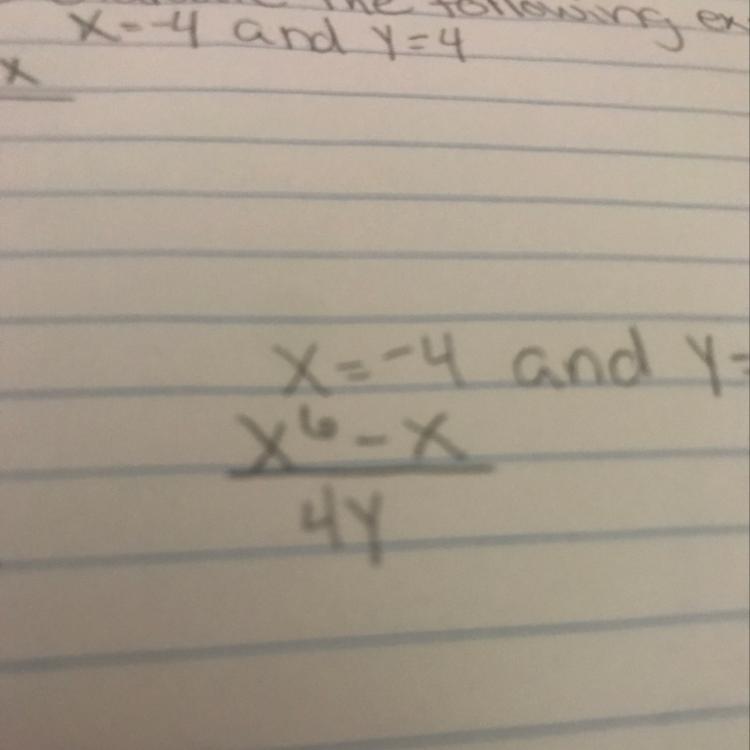 the following
x = -4 and y = 4
x
x = -4 and y =
x⁶ - x
4y